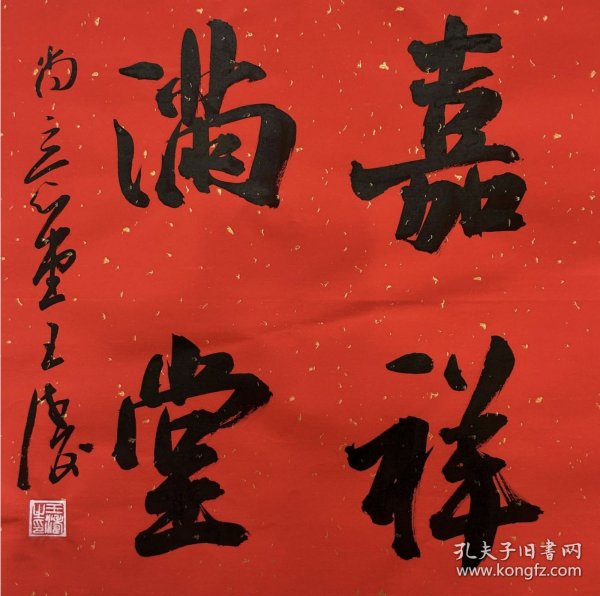 嘉祥
满堂
尚立心堂王
孔夫子旧书网
www.kongfz.com